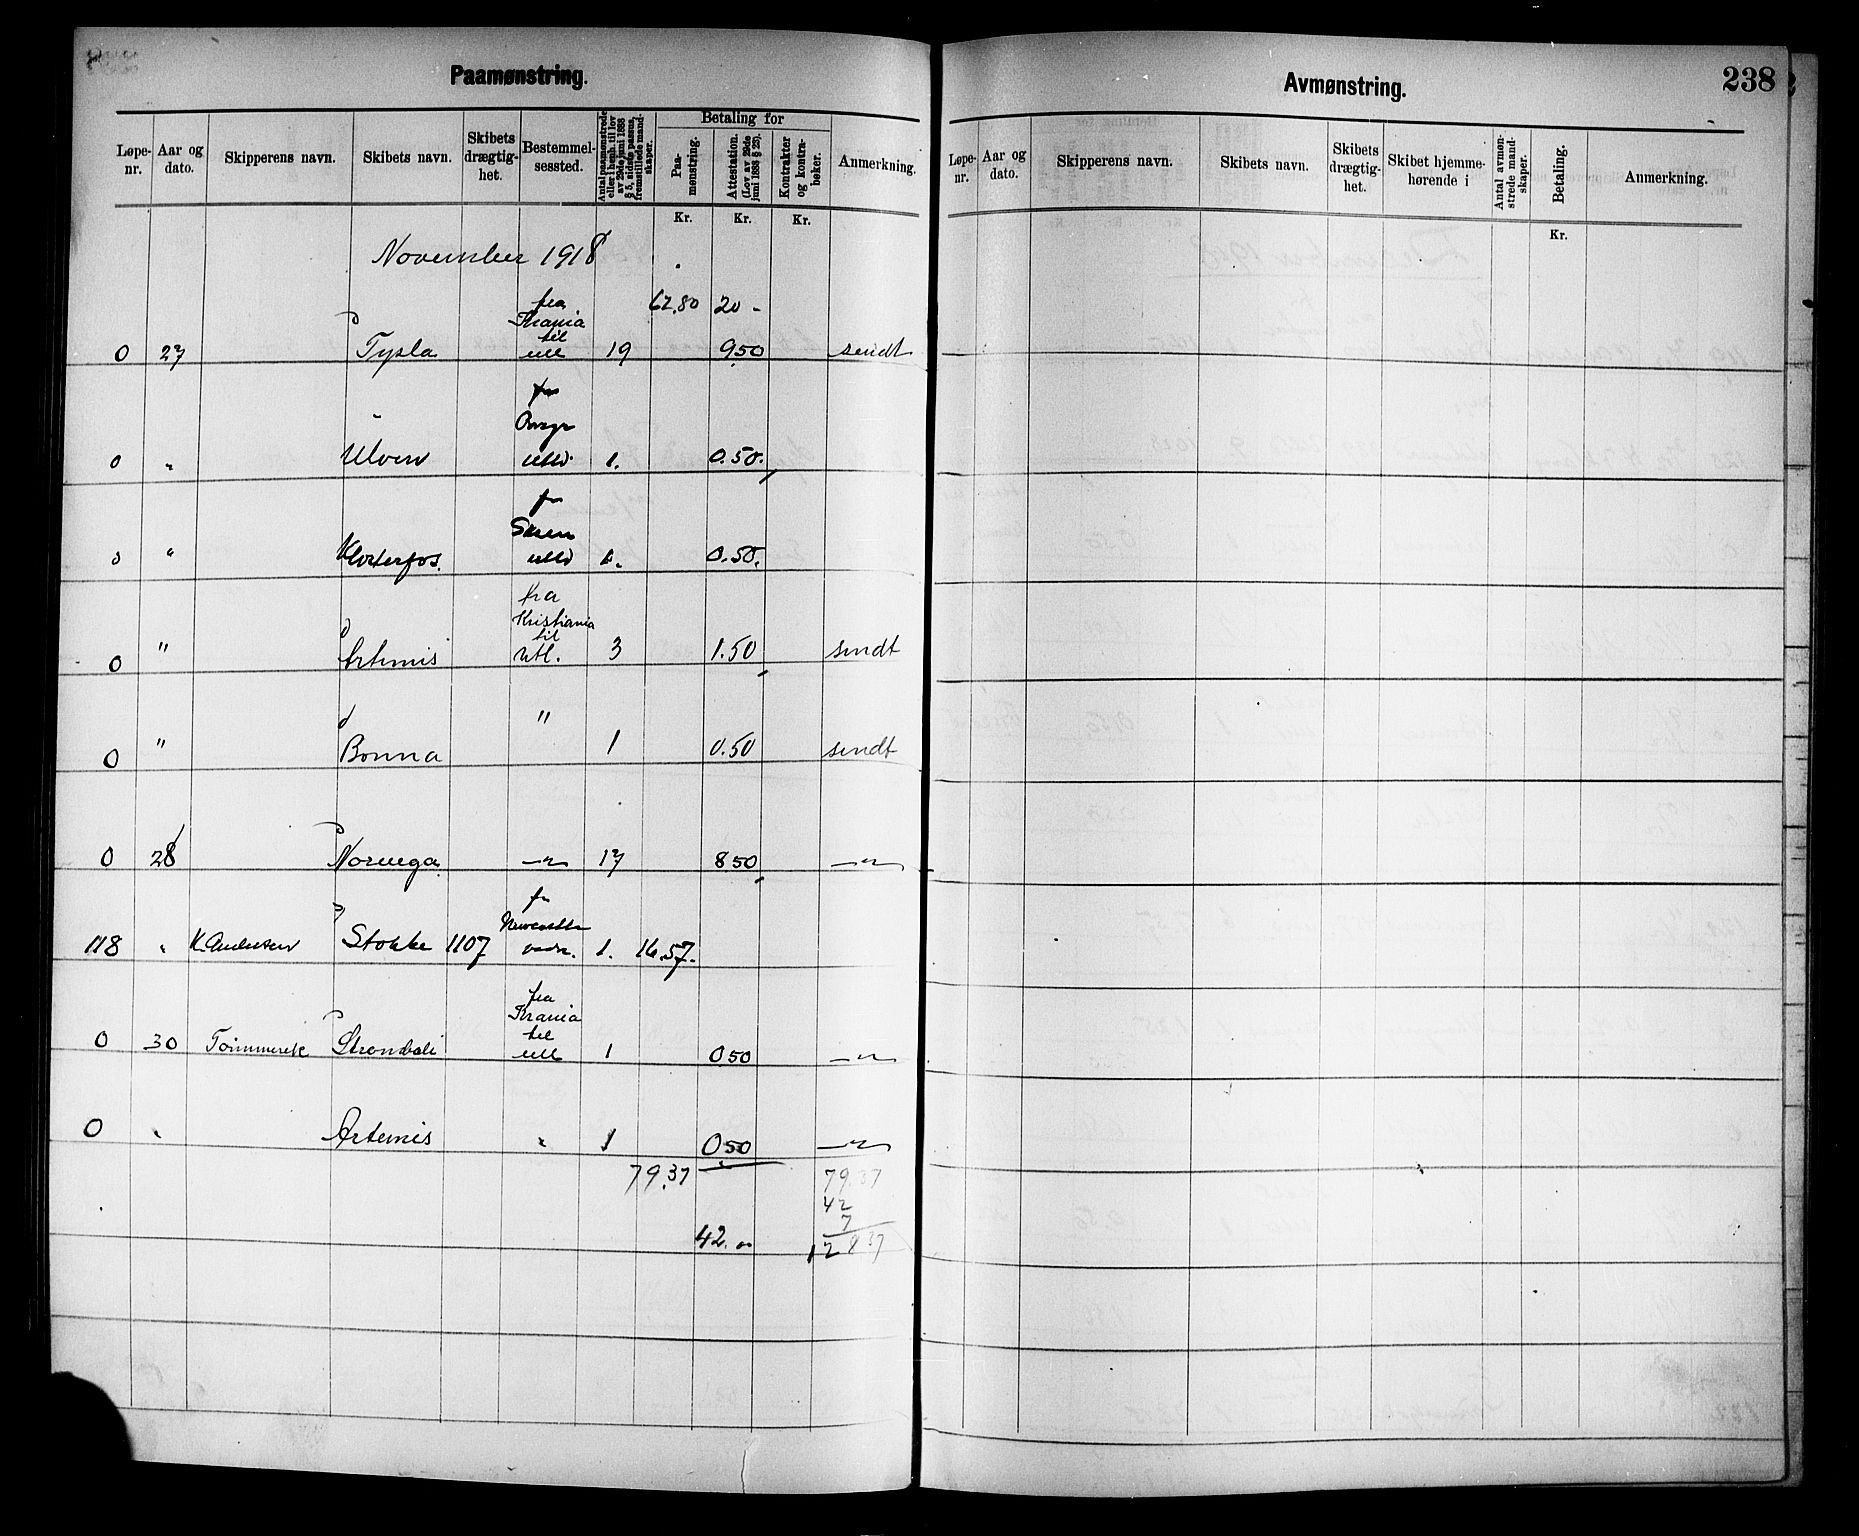 Paamønstring.
Løpe-nr. Aar og dato. Skipperens navn. Skibets navn. Skibets drægtig-het. Bestemmel-sessted. Antal paamønstrede eller i henh. til lov av 29de juni 1888 § 5, sidste passus, fremstillede mand-skaper. Betaling for Paa-mønstring. Attestation. (Lov av 29de juni 1888 § 25). Kontrakter og kontra-bøker. Anmerkning.
Kr. Kr. Kr.
November 1918
62.80 20 -
fra
Krania
til
0 27 Tysla utl 19 9.50 sendt
fr
0 " Ulven utld 1. 0.50.
fr
Skien
0 " Klosterfos. utld 1. 0.50.
fra
Kristiania
til
0 " Artemis Utl. 3 1.50 sendt
0 " Bonna " 1 0.50 sendt
0 28 Norwega — " — 17 8 50 — " —
fr
118 " K. Andersen Stokke 1107 1. 16.57.
fra
Krania
til
0 30 utl 1 0 50 — " —
0 " Artemis " 1 0 50 — " —
79.37 79.37
42
7
42. " 128 37
Avmønstring.
238
Løpe-nr. Aar og dato. Skipperens navn. Skibets navn. Skibets drægtig-het. Skibet hjemme-hørende i Antal avmøn-strede mand-skaper. Betaling. Anmerkning.
Kr.